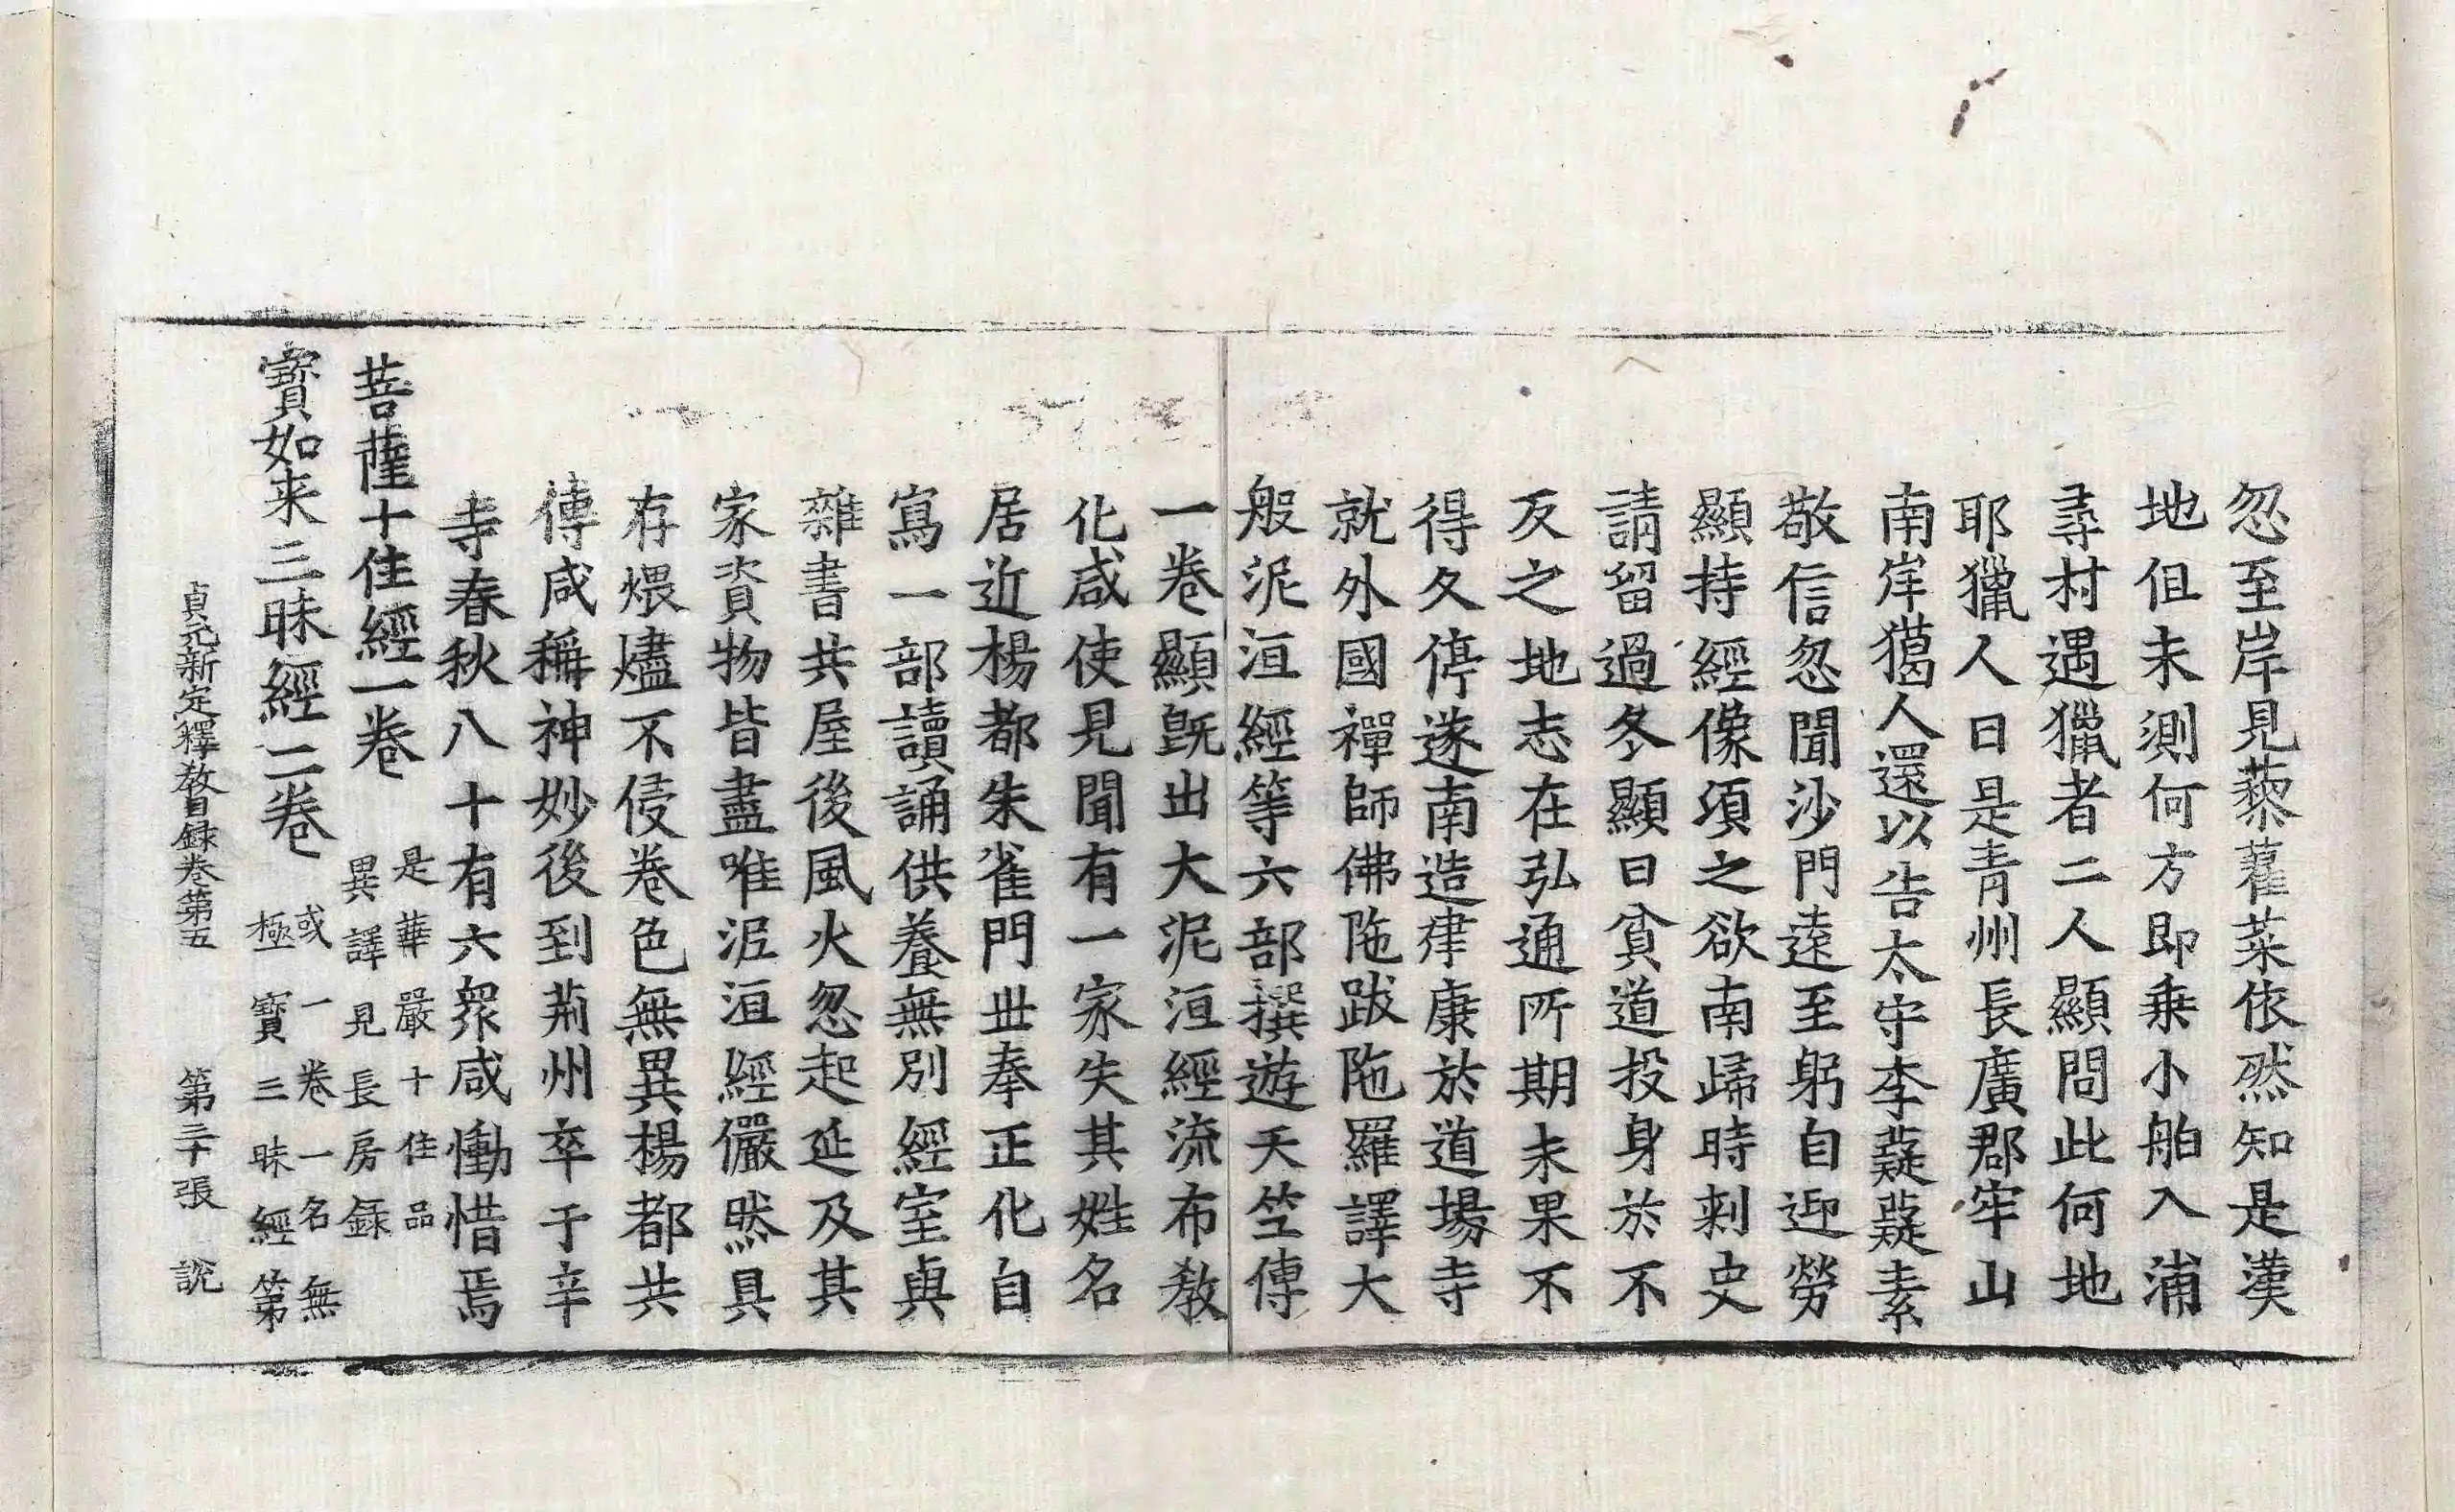 忽至岸見藜藿菜依然知是漢
地但未測何方即乗小舶入浦
尋村遇獵者二人顯問此何地
耶獵人曰是青州長廣郡牢山
南岸獦人還以告太守李薿薿素
敬信忽聞沙門遠至躬自迎勞
顯持經像須之欲南歸時刺史
請留過冬顯曰貧道投身於不
反之地志在弘通所期未果不
得久停遂南造建康於道場寺
就外國禪師佛陁跋陁羅譯大
般泥洹經等六部撰遊天竺傳
一卷顯旣出大泥洹經流布敎
化咸使見聞有一家失其姓名
居近楊都朱雀門丗奉正化自
寫一部讀誦供養無別經室與
雜書共屋後風火忽起延及其
家資物皆盡唯泥洹經儼然具
存煨燼不侵卷色無異楊都共
傳咸稱神妙後到荊州卒于辛
寺春秋八十有六衆咸慟惜焉
菩薩十住經一卷 是華嚴十住品異譯見長房録
寶如来三昧經二卷 或一卷一名無極寶三昧經第
貞元新定釋教目録卷第五 第三十張 說